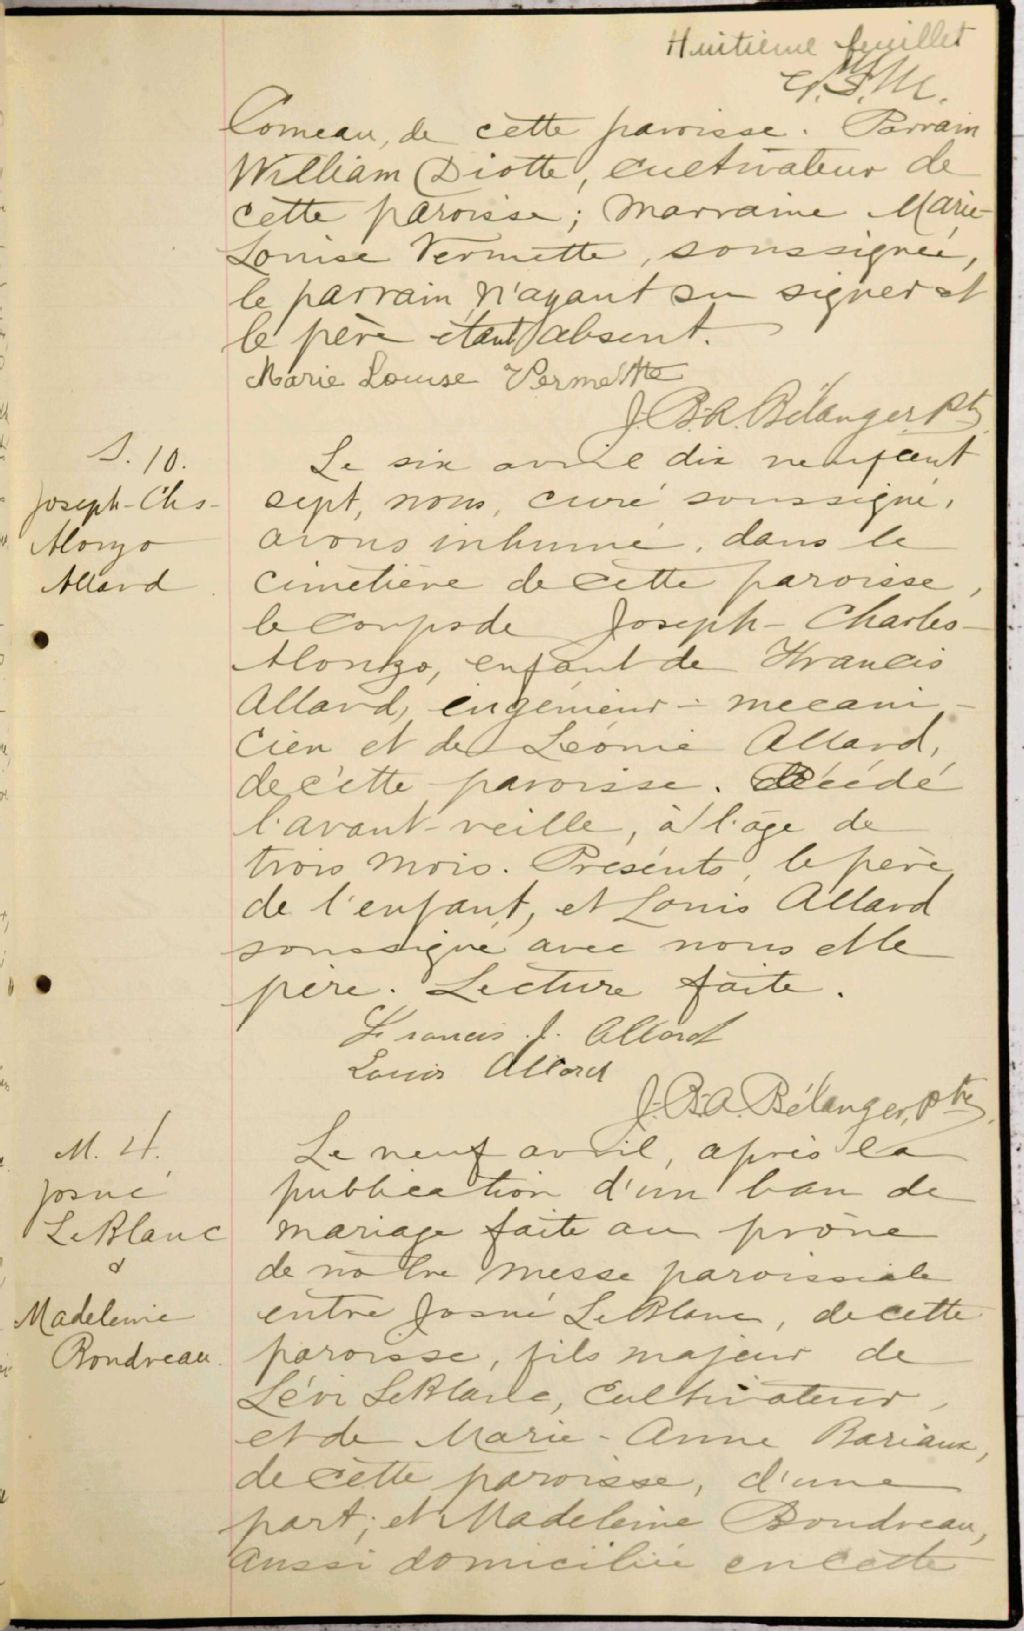 Huitième feuillet
Comeau, de cette paroisse. Parrain
William Diotte, cultivateur de
cette paroisse; marraine Marie-
Louise Vermette, soussignée,
le parrain n'ayant su signer et
le père étant absent.
Marie Louise Vermette
J. B.-A. Bélanger, Ptre
S. 10.
Joseph-Chs-
Alonzo
Allard
Le six avril dix neuf cent
sept, nous, curé soussigné,
avons inhumé, dans le
cimetière de cette paroisse,
le corps de Joseph-Charles-
Alonzo, enfant de Francis
Allard, ingénieur-mecani-
cien et de Léonie Allard,
de cette paroisse. Décédé
l'avant-veille, à l'âge de
trois mois. Présents, le père
de l'enfant, et Louis Allard
soussigné avec nous et le
père. Lecture faite.
Francis J. Allard
Louis Allard
J.-B.-A. Bélanger, Ptre
M. 4.
Josué
LeBlanc
&
Madeleine
Boudreau.
Le neuf avril, après la
publication d'un ban de
mariage faite au prône
de notre messe paroissiale
entre Josué LeBlanc, de cette
paroisse, fils majeur de
Lévi LeBlanc, cultivateur,
et de Marie-Anne Bariaux,
de cette paroisse, d'une
part; et Madeleine Boudreau,
aussi domiciliée en cette